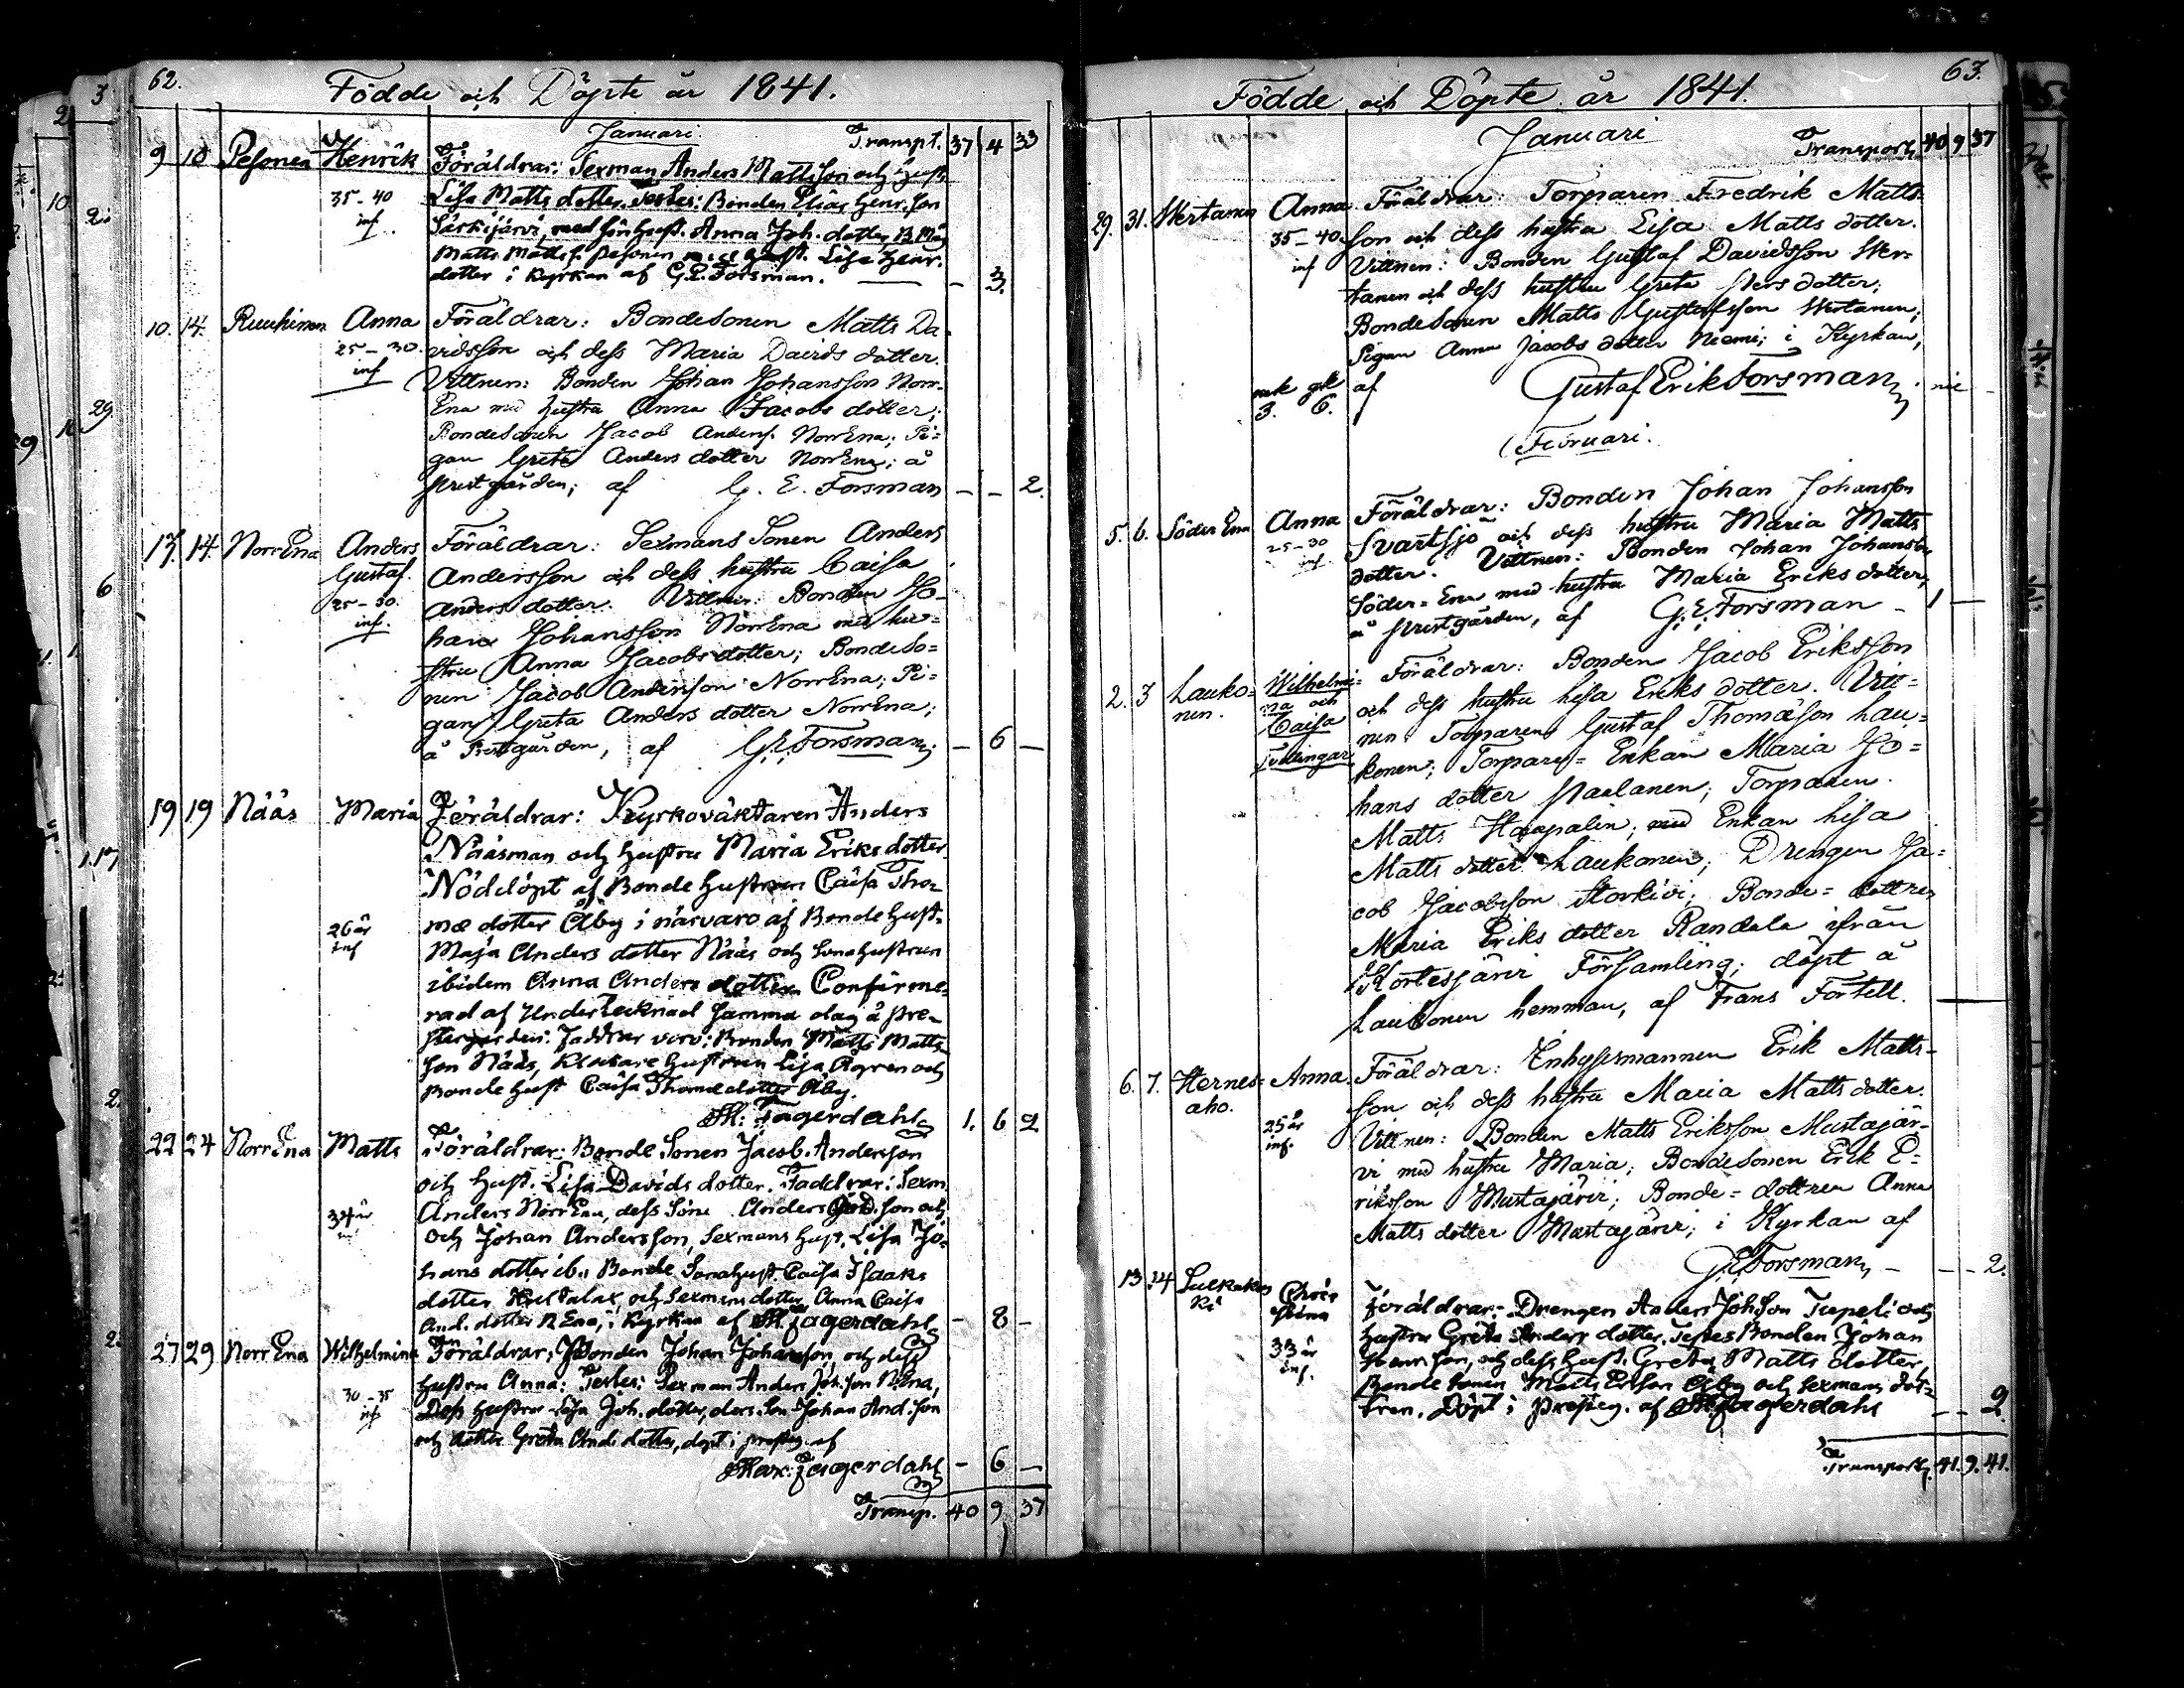 62.
Födde och Döpte år 1841.
Januari. Transpt. 37 4 33
9 10 Pesonen Henrik Föräldrar: Sexman Anders Mattsson och Hust.
35-40 Lisa Matts dotter. Testes: Bonden Elias Henr.son
inf. Särkijärvi, med sin Hust. Anna Joh. dotter, B. Måg
Matts Matts s. Pesonen med Hust. Lisa Henr.
dotter i Kyrkan af G. E. Forsman. — 3.
10. 14. Ruuhinen Anna Föräldrar: Bondesonen Matts Da-
25-30. vidsson och dess Maria Davids dotter.
inf Vittnen: Bonden Johan Johansson Norr-
Ena med hustru Anna Jacobs dotter;
Bondesonen Jacob Anders. Norr Ena; Pi=
gan Greta Anders dotter Norr Ena; å
Prestgården; af G. E. Forsman — — 2.
13. 14. Norr Ena Anders Föräldrar: Sexmans Sonen Anders
Gustaf. Andersson och dess hustru Caisa
25-30. Anders dotter. Vittnen: Bonden Jo-
inf. han Johansson Norr Ena med hu=
stru Anna Jacobs dotter; Bondeso=
nen Jacob Andersson Norr Ena; Pi=
gan Greta Anders dotter Norr Ena;
å Prestgården, af G. E. Forsman; — 6 —
19 19 Nääs Maria Föräldrar: Kyrkoväktaren Anders
Nääsman och hustru Maria Eriks dotter
Nöddöpt af Bonde Hustrun Caisa Tho-
26 år mæ dotter Åby i närvaro af Bonde Hust.
inf Maja Anders dotter Nääs och Sonahustrun
ibidem Anna Anders dotter Confirme-
rad af Undertecknad samma dag å Pre-
stegården: Faddrar voro: Bonden Matts Matts
son Nääs, Klockare Hustrun Lisa Agren och
Bonde Hust Caisa Thomæ dotter Åby.
M: Fagerdahl 1. 6 2
22 24 Norr Ena Matts Föräldrar: Bonde Sonen Jacob Andersson
och Hust. Lisa Davids dotter. Faddrar: Sexm
34 år Anders Norr Ena, dess Söne Anders And.son och
inf och Johan Andersson, Sexmans Hust. Lisa Jo-
hans dotter ib., Bonde Sonahust. Caisa Isaaks
dotter, och Sexmans dotter Anna Caisa
And. dotter N Ena, i Kyrkan af M. Fagerdahl — 8 —
27 29 Norr Ena Wilhelmina Föräldrar: Bonden Johan Johansson, och dess
30-35 Hustru Anna: Testes: Sexman Anders Joh.son N. Ena,
inf Dess Hustru Lisa Joh. dotter, ders. Son Johan And.son
och dotter Greta And. dotter, döpt i presteg. af
Max: Fagerdahl — 6 —
Transp. 40 9 37
63.
Födde och Döpte år 1841.
Januari
Transport, 40 9 37
29. 31. Wertanen Anna Föräldrar: Torparen Fredrik Matts-
35-40. son och dess hustru Lisa Matts dotter.
inf Vittnen: Bonden Gustaf Davidsson Wer-
tanen och dess hustru Greta Pers dotter;
Bondesonen Matts Gustafsson Wertanen;
Pigan Anna Jacobs dotter Niemi; i Kyrkan,
mk gk af Gustaf Erik Forsman
3. 6.
Februari.
5. 6. Söder Ena Anna Föräldrar: Bonden Johan Johansson
25-30 Svartsjö och dess hustru Maria Matts
inf. dotter. Vittnen: Bonden Johan Johansson
Söder-Ena med hustru Maria Eriks dotter,
å Prestgården, af G. E. Forsman - 1 —
2. 3 Lauko= Wilhelmi= Föräldrar: Bonden Jacob Eriksson
nen. na och och dess hustru Lisa Eriks dotter. Vitt=
Caisa nen: Torparen Gustaf Thomæson Lau=
Tvillingar konen; Torpare=Enkan Maria Jo=
hans dotter Paalanen; Torparen
Matts Haapalin; med Enkan Lisa
Matts dotter Laukonen; Drengen Ja=
cob Jacobsson Storkivi; Bonde=dottren
Maria Eriks dotter Randala ifrån
Kortesjärvi Församling; döpt å
Laukonen hemman, af Frans Fortell.
6. 7. Hernes= Anna. Föräldrar: Inhysesmannen Erik Matts-
aho. son och dess hustru Maria Matts dotter.
25 år Vittnen: Bonden Matts Eriksson Mustajär-
inf. vi med hustru Maria; Bondesonen Erik E=
riksson Mustajärvi; Bonde=dottren Anna
Matts dotter Mustajärvi; i Kyrkan af
G. E. Forsman, — — — 2.
13. 14 Föräldrar: Drengen Anders Joh.Son Tupeli och
Stina Hustru Greta Anders dotter. Testes Bonden Johan
33 år Henr.son, och dess Hust. Greta Matts dotter,
inf. Bonde Sonen Matts Erson Åby och Sexmans dot-
tren. Döpt i Presteg. af M. Fagerdahl — — 2
Transport, 41. 9. 41.